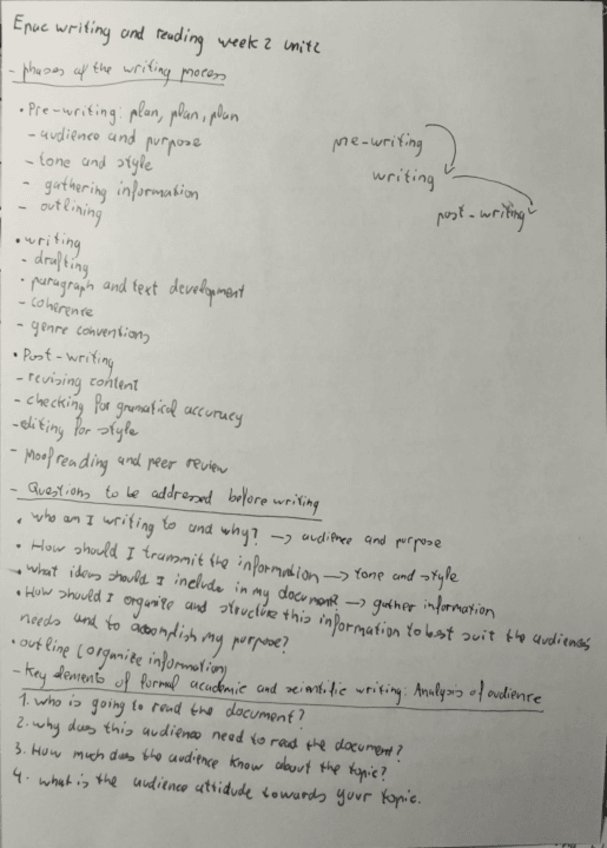 Epuc writing and reading week 2 unit 2
- phases of the writing process
• Pre-writing: plan, plan, plan
- audience and purpose
- tone and style
- gathering information
- outlining
pre-writing
writing
post-writing
• writing
- drafting
- paragraph and text development
- coherence
- genre conventions
• Post-writing
- revising content
- checking for gramatical accuracy
- editing for style
- proofreading and peer review
- Questions to be addressed before writing
• who am I writing to and why? → audience and purpose
• How should I transmit the information → tone and style
• what ideas should I include in my document → gather information
• How should I organize and structure this information to best suit the audiences
needs and to accomplish my purpose?
• outline (organize information)
- Key elements of formal academic and scientific writing: Analysis of audience
1. who is going to read the document?
2. why does this audience need to read the document?
3. How much does the audience know about the topic?
4. what is the audience attidude towards your topic.